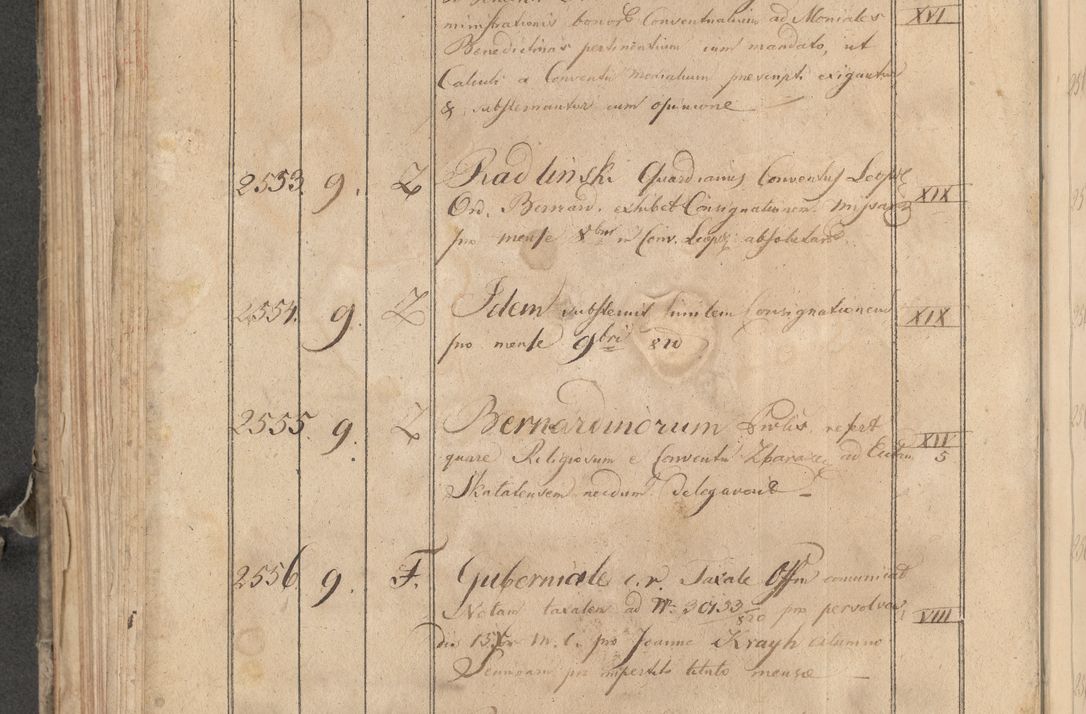 ministrationis bonor. Conventualium ad Moniales XVI
Benedictinas pertinentium cum mandato, ut
Calculi a Conventu Monialium praescripti exigantur
& substernantur cum opinione
2553. 9. Z Radliński Guardianus Conventus Leopl. XIX
Ord. Bernard. exhibet Consignationem Missar.
pro mense 8bris in Conv. Leopl. absolutar.
2554. 9. Z Idem substernit similem Consignationem XIX
pro mense 9bri 820
2555 9. Z Bernardinorum refert XIV
quare Religiosum e Conventu Zbaraz. ad 5
Skalatensem necdum delegaverit
2556 9. F. Guberniale c. r. Taxale Offm comunicat
Notam taxalem ad Nr. 820 pro persolven. VIII
m. c. pro Joanne Krayh alumno
pro impertito titulo mensae